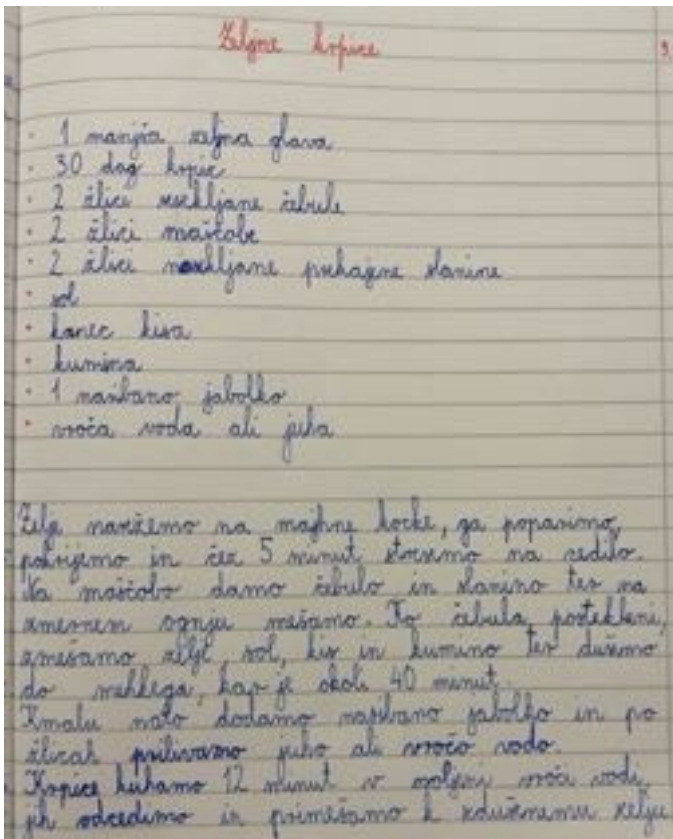 Zeljne krpice
9.
1 manjša zeljna glava
30 dag krpic
2 žlici sesekljane čebule
2 žlici maščobe
2 žlici nasekljane prekajene slanine
sol
kanec kisa
kumina
1 naribano jabolko
vroča voda ali juha
Zelje narežemo na majhne kocke, ga poparimo,
pokrijemo in čez 5 minut stresemo na cedilo.
Na maščobo damo čebulo in slanino ter na
zmernem ognju mešamo. Ko čebula postekleni,
zmešamo zelje, sol, kis in kumino ter dušimo
do mehkega, kar je okoli 40 minut.
Kmalu nato dodamo naribano jabolko in po
žlicah prilivamo juho ali vročo vodo.
Krpice kuhamo 12 minut v soljeni vroči vodi,
jih odcedimo in primešamo k zdušenemu zelju